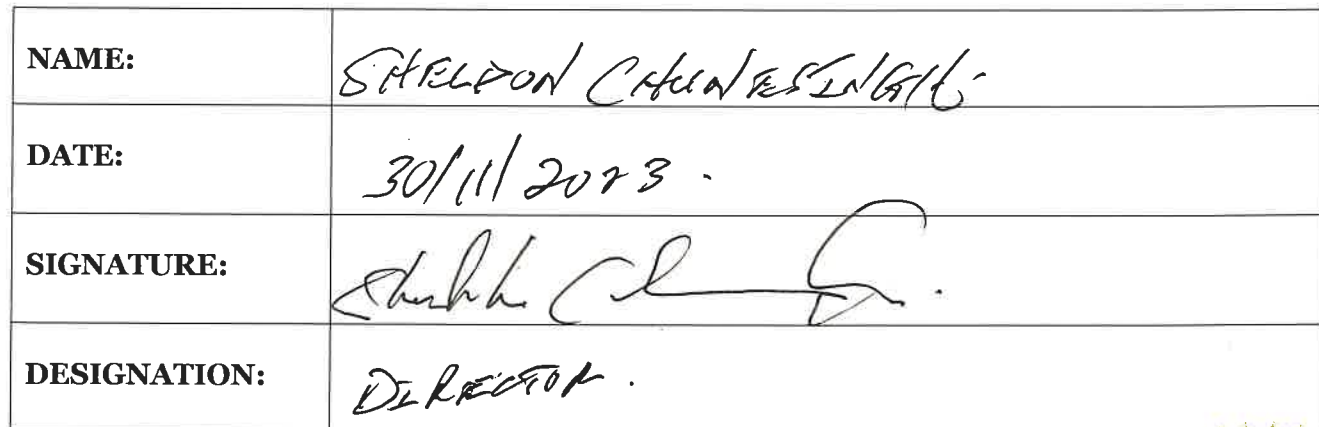 NAME: SHELDON CHUNESINGH.
DATE: 30/11/2023.
SIGNATURE:
DESIGNATION: DIRECTOR.